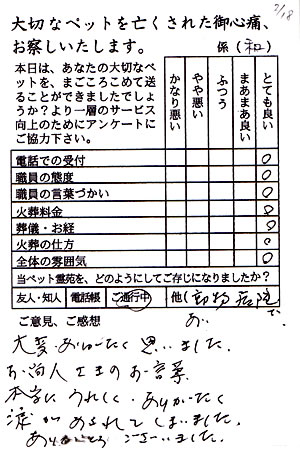 2/18
大切なペットを亡くされた御心痛、
お察しいたします。 係(和)
本日は、あなたの大切なペットを、まごころこめて送ることができましたでしょうか?より一層のサービス向上のためにアンケートにご協力下さい。
かなり悪い
やや悪い
ふつう
まあまあ良い
とても良い
電話での受付 ○
職員の態度 ○
職員の言葉づかい ○
火葬料金 ○
葬儀・お経 ○
火葬の仕方 ○
全体の雰囲気 ○
当ペット霊苑を、どのようにしてご存じになりましたか?
友人・知人 電話帳 ご通行中 他(動物病院で
ご意見、ご感想
大変ありがたく思いました。
お尚人さまのお言葉
本当にうれしく・ありがたく
涙があふれてしまいました。
ありがとうございました。